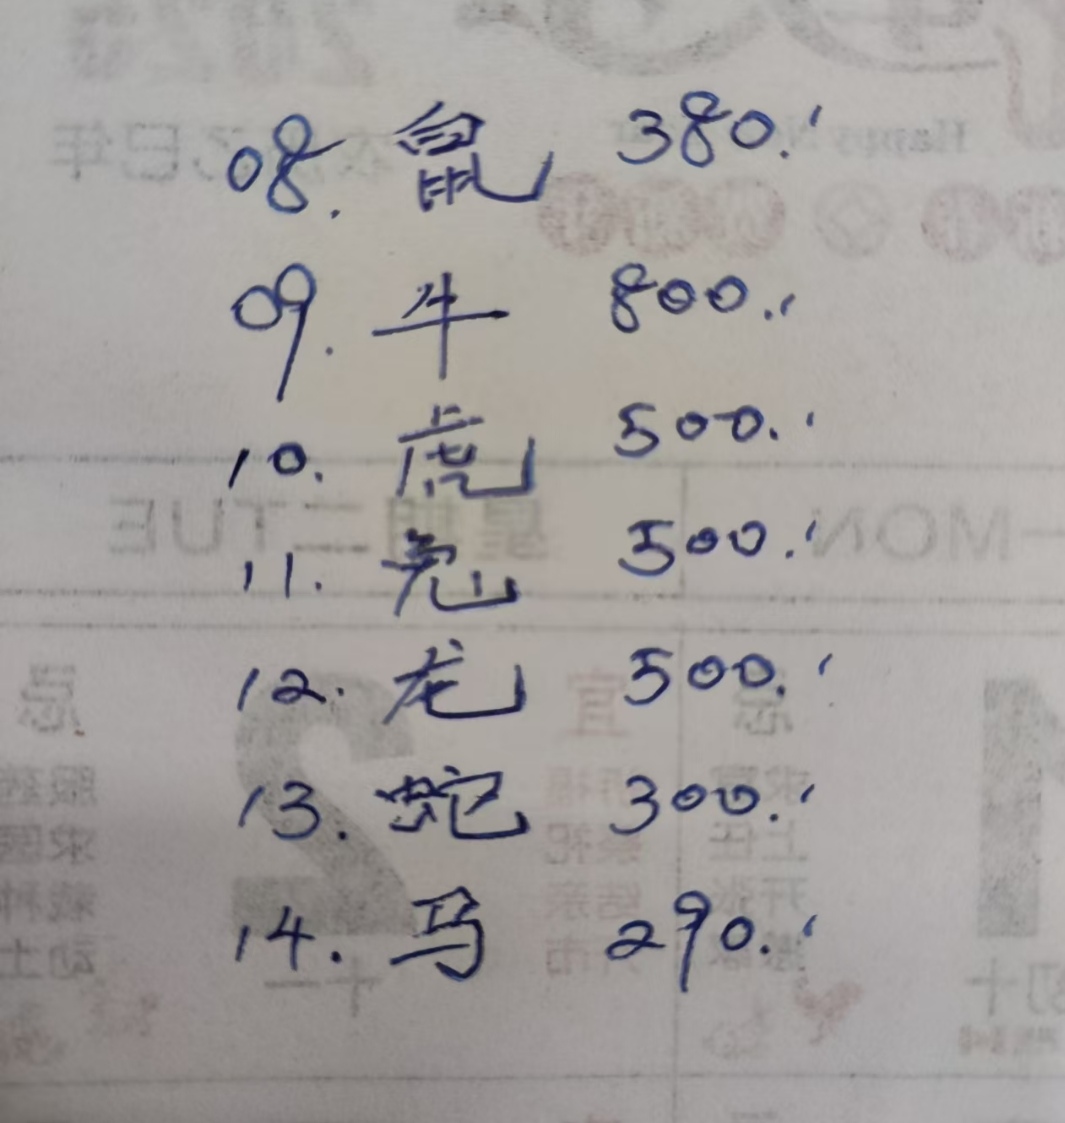 08. 鼠 380.
09. 牛 800.
10. 虎 500.
11. 兔 500.
12. 龙 500.
13. 蛇 300.
14. 马 290.